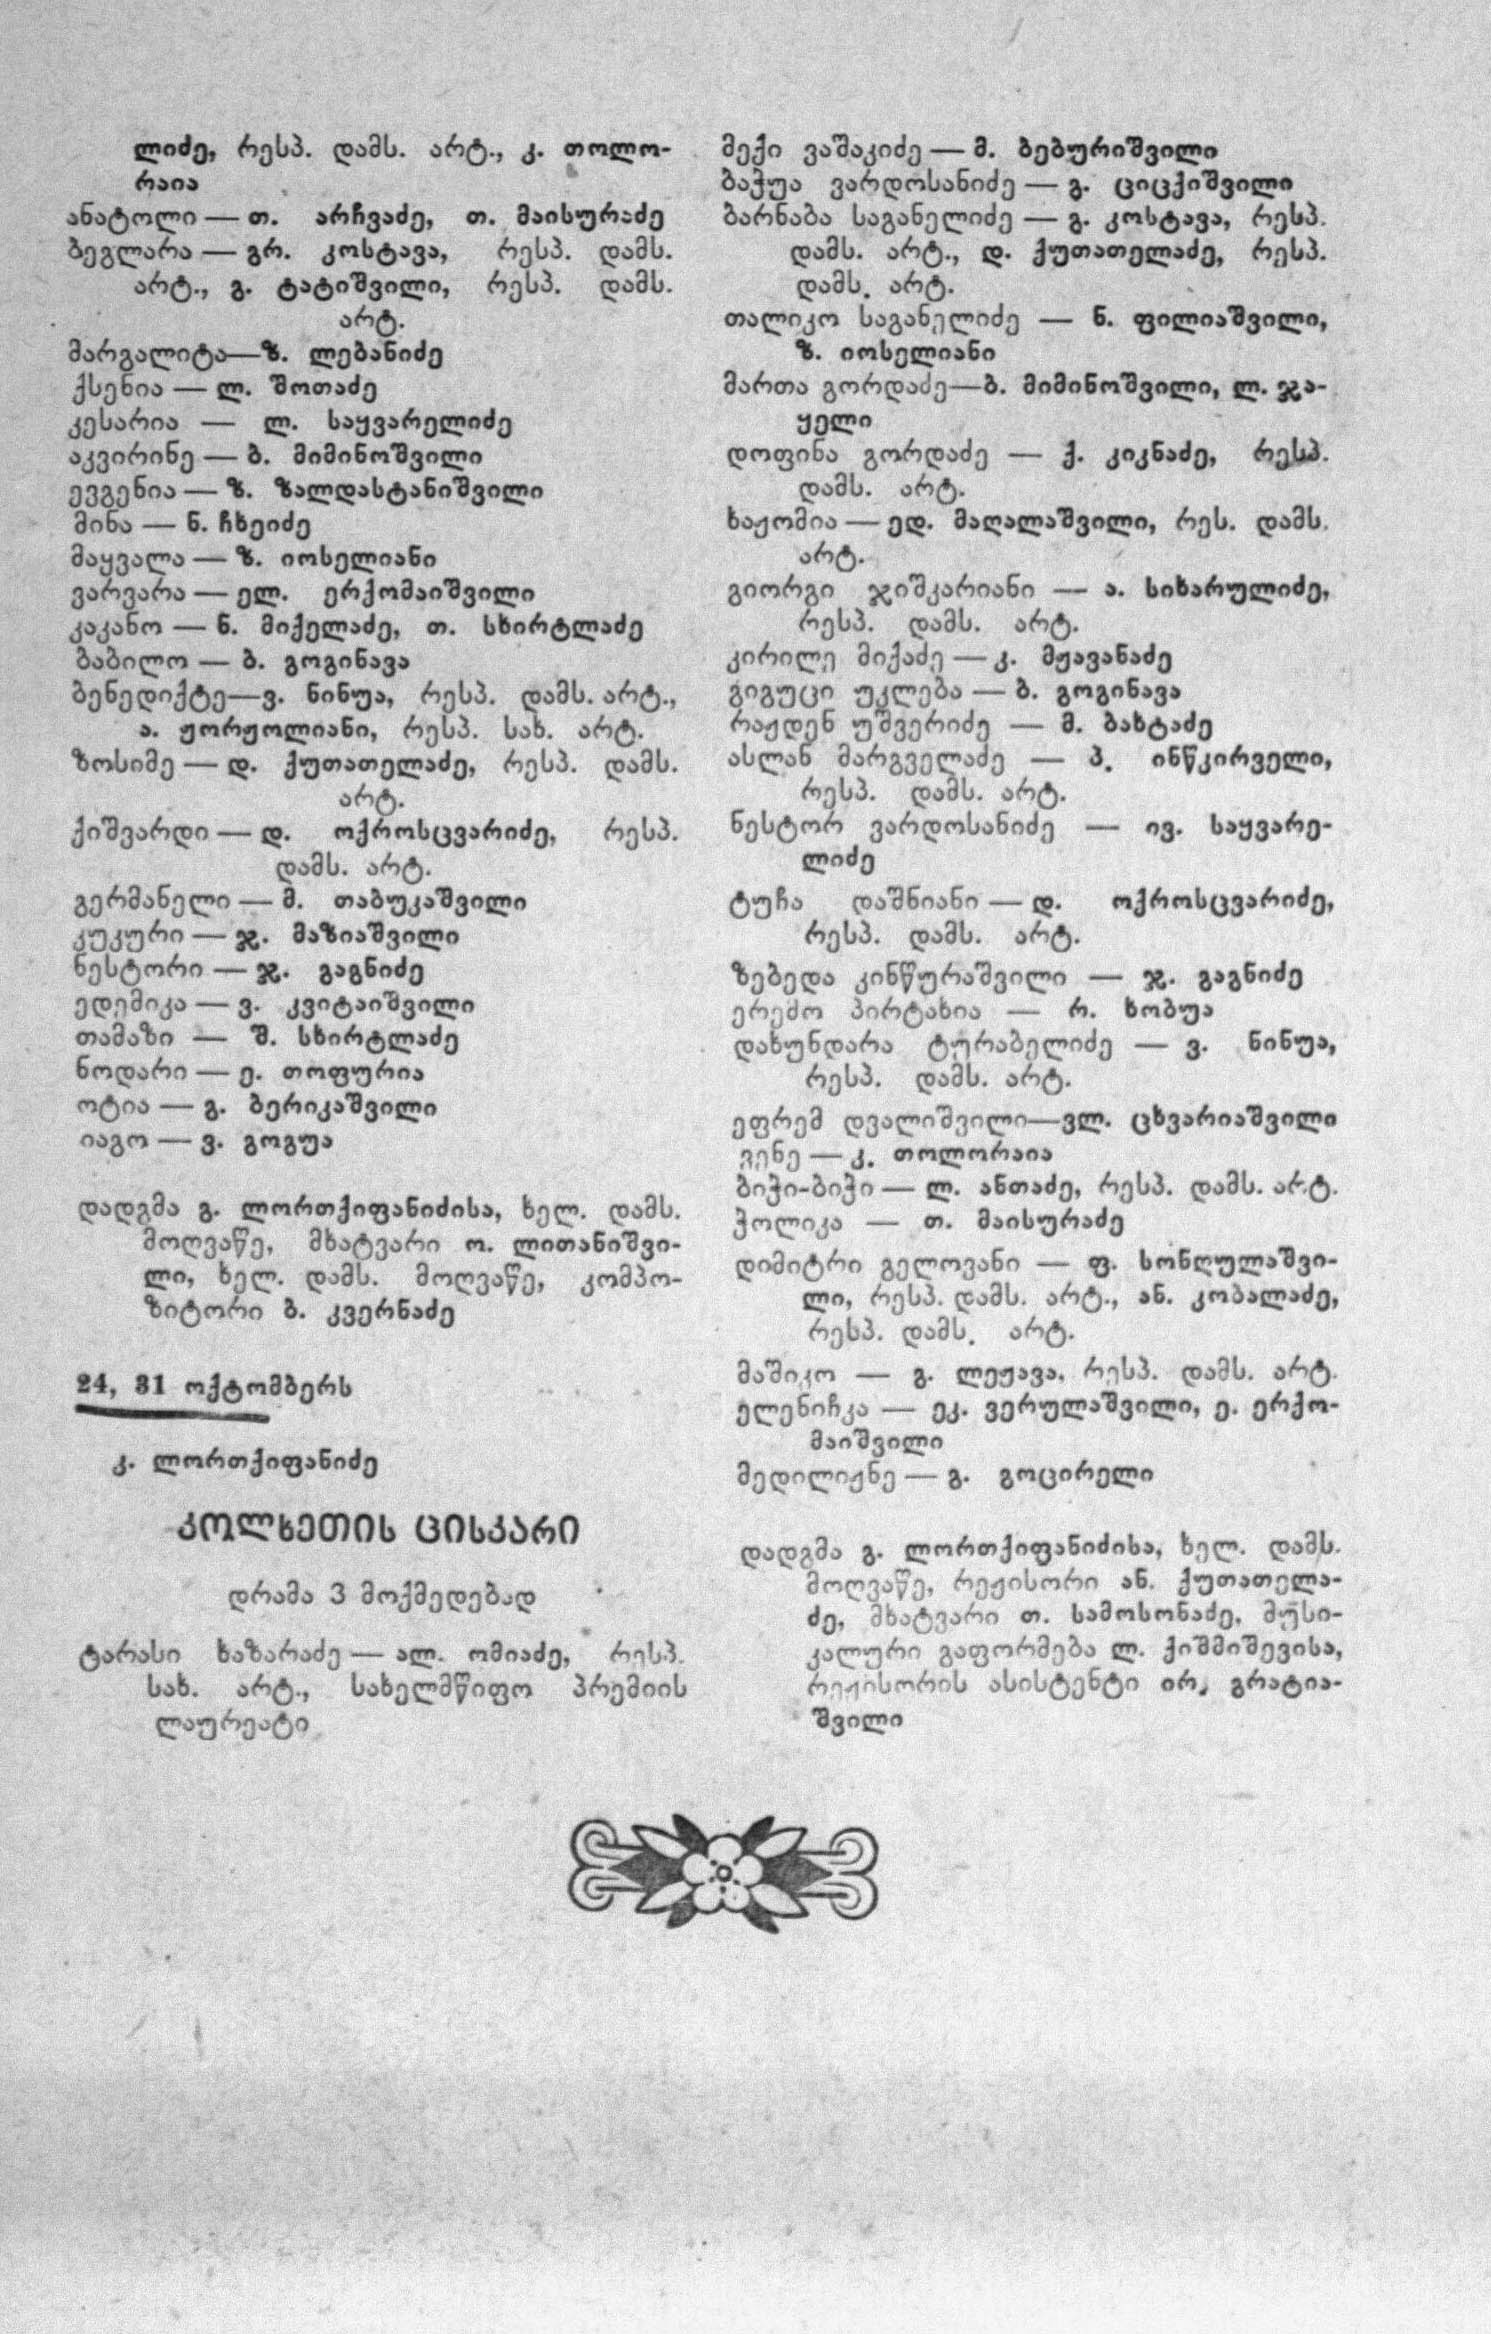 ლიძე, რესპ. დამს. არტ., კ. თოლო-
რაია
ანატოლი — თ. არჩვაძე, თ. მაისურაძე
ბეგლარა — გრ. კოსტავა, რესპ. დამს.
არტ., გ. ტატიშვილი, რესპ. დამს.
არტ.
მარგალიტა—ზ. ლებანიძე
ქსენია — ლ. შოთაძე
კესარია — ლ. საყვარელიძე
აკვირინე — ბ. მიმინოშვილი
ევგენია — ზ. ზალდასტანიშვილი
მინა — ნ. ჩხეიძე
მაყვალა — ზ. იოსელიანი
ვარვარა — ელ. ერქომაიშვილი
კაკანო — ნ. მიქელაძე, თ. სხირტლაძე
ბაბილო — ბ. გოგინავა
ბენედიქტე—ვ. ნინუა, რესპ. დამს. არტ.,
ა. ჟორჟოლიანი, რესპ. სახ. არტ.
ზოსიმე — დ. ქუთათელაძე, რესპ. დამს.
არტ.
ქიშვარდი — დ. ოქროსცვარიძე, რესპ.
დამს. არტ.
გერმანელი — მ. თაბუკაშვილი
კუკური — ჯ. მაზიაშვილი
ნესტორი — ჯ. გაგნიძე
ედემიკა — ვ. კვიტაიშვილი
თამაზი — შ. სხირტლაძე
ნოდარი — ე. თოფურია
ოტია — გ. ბერიკაშვილი
იაგო — ვ. გოგუა
დადგმა გ. ლორთქიფანიძისა, ხელ. დამს.
მოღვაწე, მხატვარი ო. ლითანიშვი-
ლი, ხელ. დამს. მოღვაწე, კომპო-
ზიტორი ბ. კვერნაძე
24, 31 ოქტომბერს
კ. ლორთქიფანიძე
კოლხეთის ცისკარი
დრამა 3 მოქმედებად
ტარასი ხაზარაძე — ალ. ომიაძე, რესპ.
სახ. არტ., სახელმწიფო პრემიის
ლაურეატი
მექი ვაშაკიძე — მ. ბებურიშვილი
ბაჭუა ვარდოსანიძე — გ. ციცქიშვილი
ბარნაბა საგანელიძე — გ. კოსტავა, რესპ.
დამს. არტ., დ. ქუთათელაძე, რესპ.
დამს. არტ.
თალიკო საგანელიძე — ნ. ფილიაშვილი,
ზ. იოსელიანი
მართა გორდაძე—ბ. მიმინოშვილი, ლ. ჯა-
ყელი
დოფინა გორდაძე — ქ. კიკნაძე, რესპ.
დამს. არტ.
ხაჟომია — ედ. მაღალაშვილი, რეს. დამს.
არტ.
გიორგი ჯიშკარიანი — ა. სიხარულიძე,
რესპ. დამს. არტ.
კირილე მიქაძე — კ. მჟავანაძე
გიგუცი უკლება — ბ. გოგინავა
რაჟდენ უშვერიძე — მ. ბახტაძე
ასლან მარგველაძე — პ. ინწკირველი,
რესპ. დამს. არტ.
ნესტორ ვარდოსანიძე — ივ. საყვარე-
ლიძე
ტუჩა დაშნიანი — დ. ოქროსცვარიძე,
რესპ. დამს. არტ.
ზებედა კინწურაშვილი — ჯ. გაგნიძე
ერემო პირტახია — რ. ხობუა
დახუნდარა ტურაბელიძე — ვ. ნინუა,
რესპ. დამს. არტ.
ეფრემ დვალიშვილი—ვლ. ცხვარიაშვილი
ვენე — კ. თოლორაია
ბიჭი-ბიჭი — ლ. ანთაძე, რესპ. დამს. არტ.
ჭოლიკა — თ. მაისურაძე
დიმიტრი გელოვანი — ფ. სონღულაშვი-
ლი, რესპ. დამს. არტ., ან. კობალაძე,
რესპ. დამს. არტ.
მაშიკო — გ. ლეჟავა, რესპ. დამს. არტ.
ელენიჩკა — ეკ. ვერულაშვილი, ე. ერქო-
მაიშვილი
მედილიჟნე — გ. გოცირელი
დადგმა გ. ლორთქიფანიძისა, ხელ. დამს.
მოღვაწე, რეჟისორი ან. ქუთათელა-
ძე, მხატვარი თ. სამოსონაძე, მუსი-
კალური გაფორმება ლ. ქიშმიშევისა,
რეჟისორის ასისტენტი ირ. გრატია-
შვილი